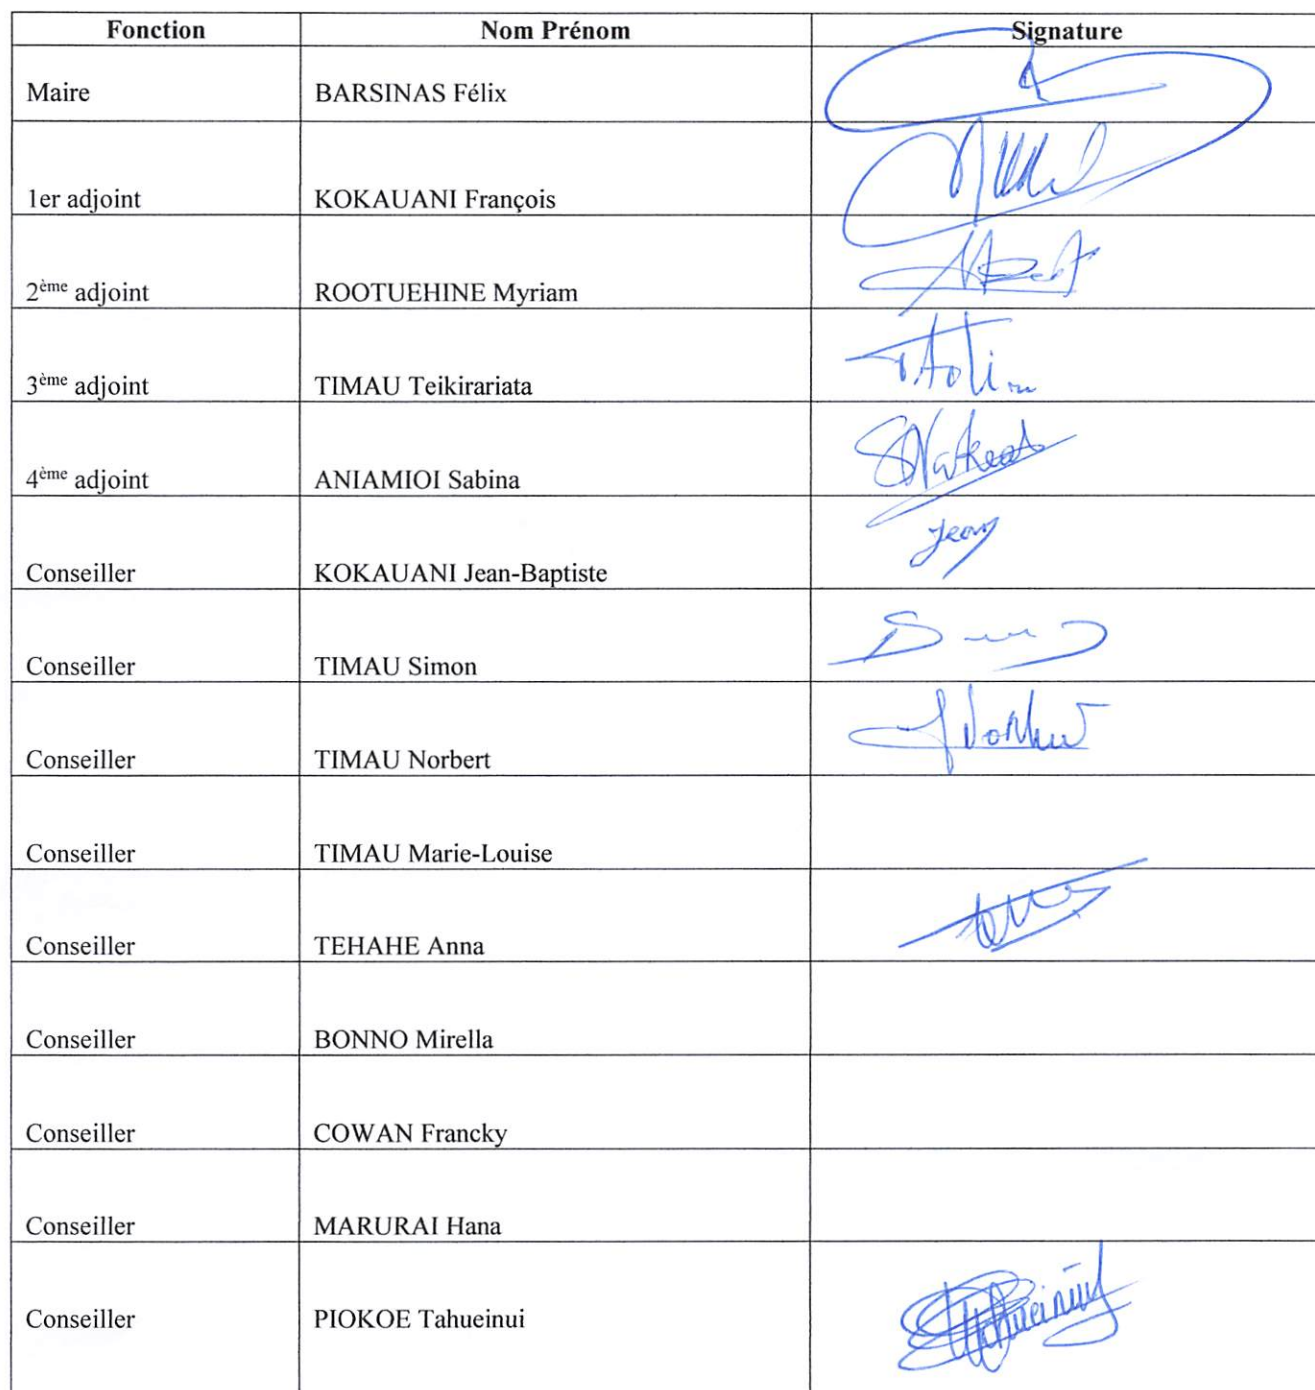 Fonction Nom Prénom Signature
Maire BARSINAS Félix
1er adjoint KOKAUANI François
2ème adjoint ROOTUEHINE Myriam
3ème adjoint TIMAU Teikirariata
4ème adjoint ANIAMIOI Sabina
Jean
Conseiller KOKAUANI Jean-Baptiste
Conseiller TIMAU Simon
Conseiller TIMAU Norbert
Conseiller TIMAU Marie-Louise
Conseiller TEHAHE Anna
Conseiller BONNO Mirella
Conseiller COWAN Francky
Conseiller MARURAI Hana
Conseiller PIOKOE Tahueinui